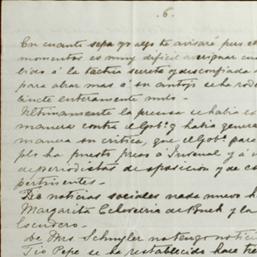 6.
En cuanto sepa yo algo te avisaré pues e
momentos es muy dificil averiguar cu
bido á la táctica secreta y desconfiada
para obrar mas ó en antojo se ha ro
tiricte enteramente nulo.
Ultimamente la prensa se habia e
manera contra el Gob.º y habia genera
manera en critica, que el Gob.º para
plo ha puesto preso á Juvenal y á v
de periodistas de oposicion y de c
pertinentes.
De noticias sociales nada nuevo h
Margarita Echeverria de Buch y la
Escudero.
De Mrs Schuyler no tengo notici
Tio Pepe se ha restablecido hace tre